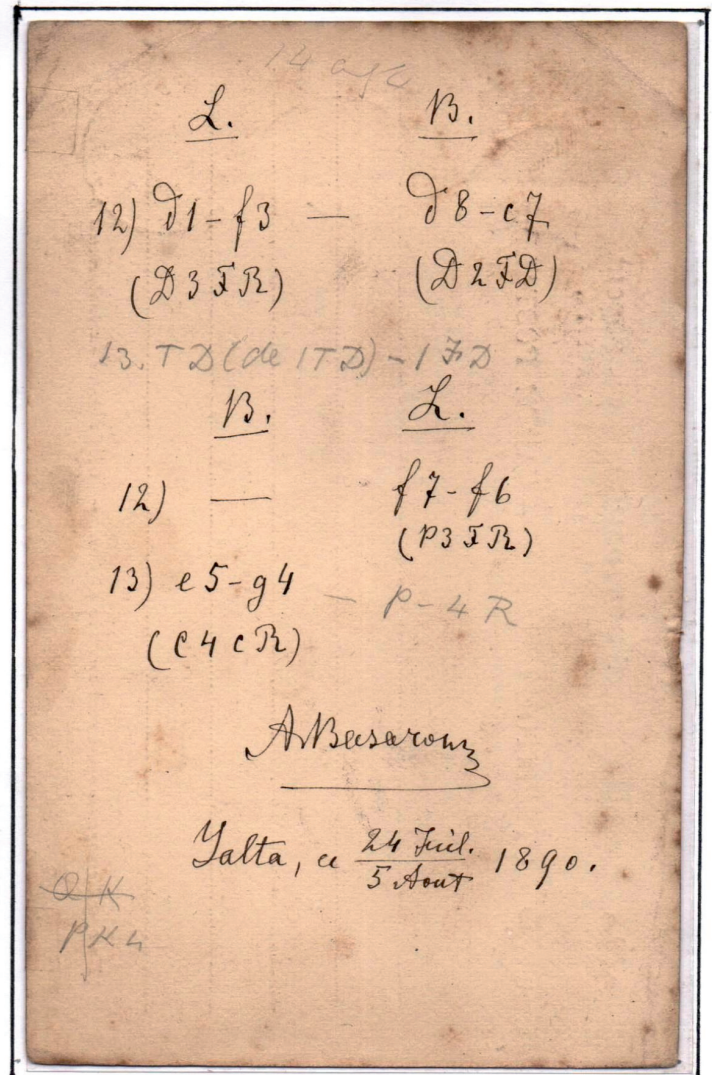 L. B.
12) d1-f3 — d8-c7
(D3FR) (D2FD)
13. TD (de 1TD) - 1FD
B. L.
12) — f7-f6
(P3FR)
13) e5-g4 — P-4R
(C4CR)
Yalta, ce 24 Juil. / 5 Aout 1890.
PK4